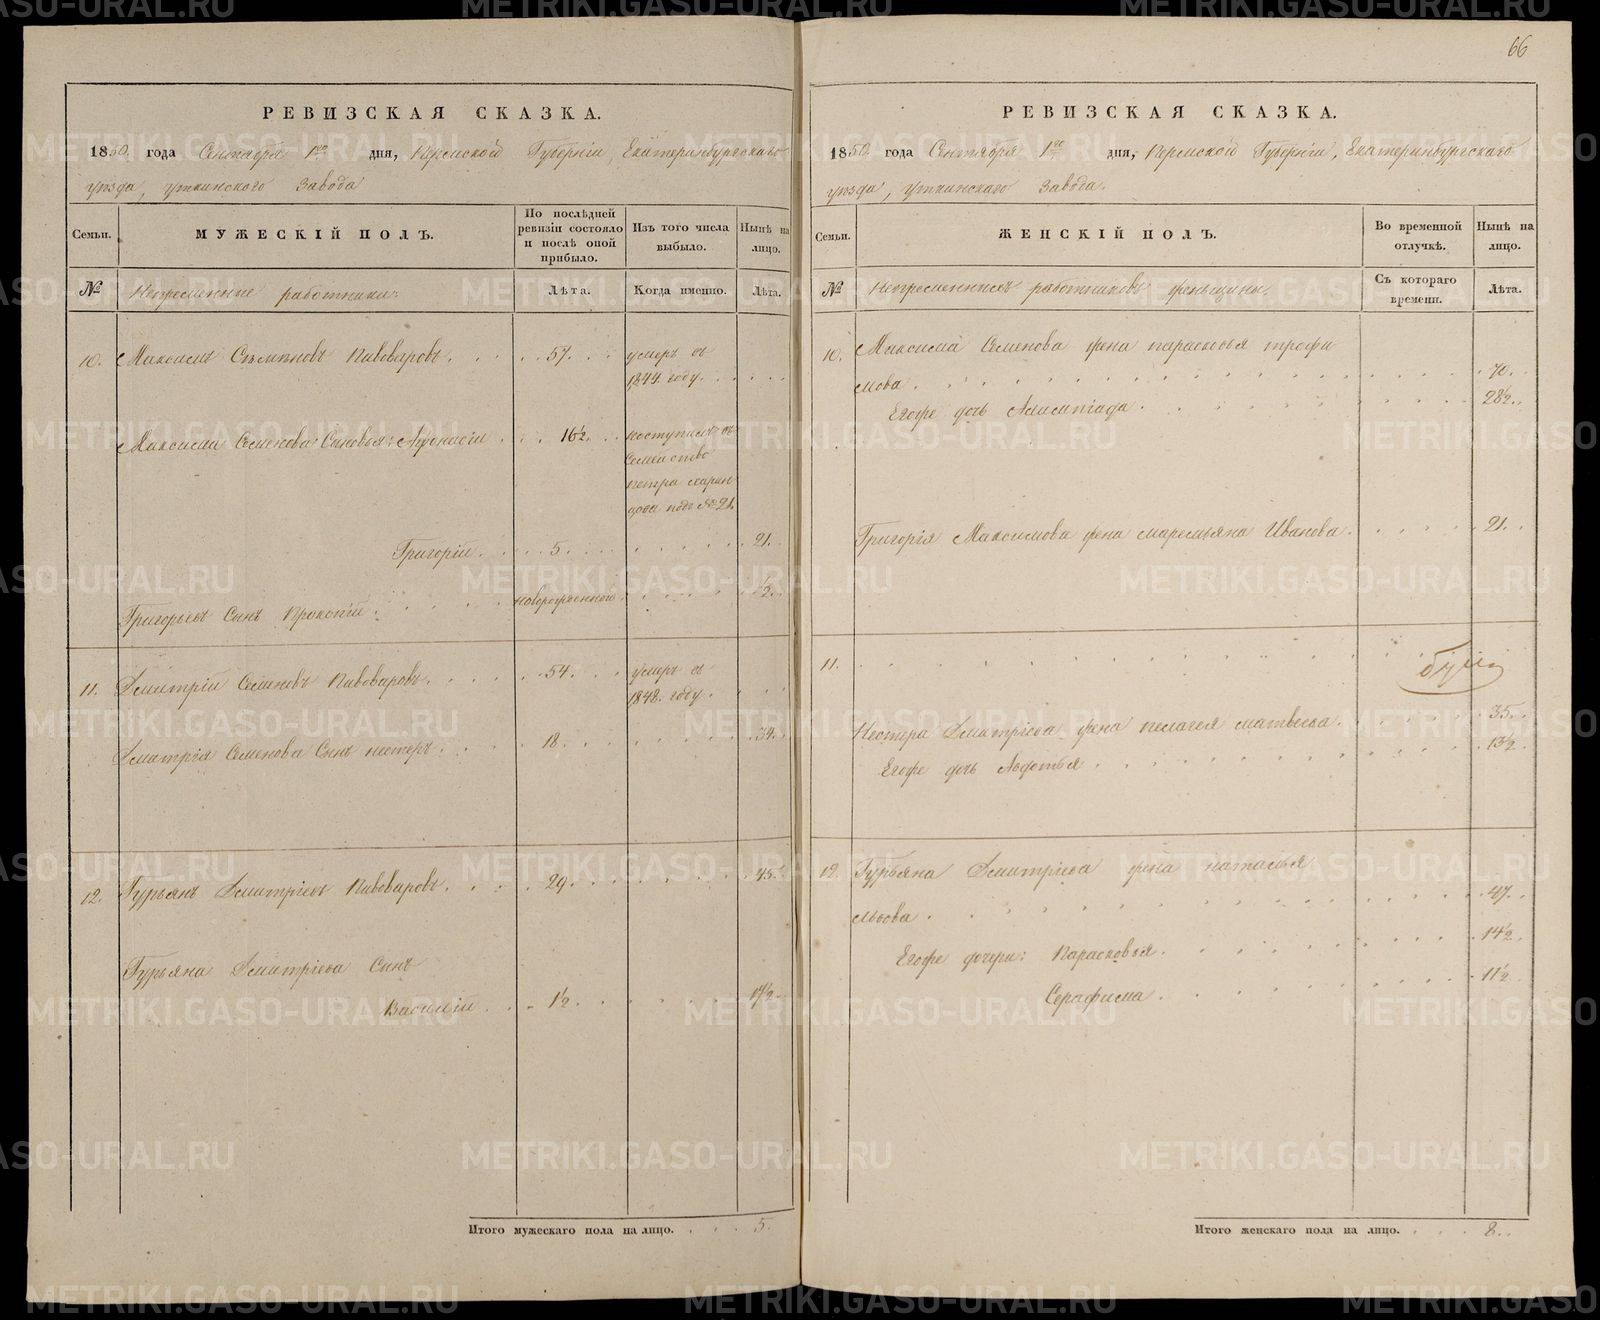 66
РЕВИЗСКАЯ СКАЗКА.
1850. года Сентября 1го дня, Пермской Губерніи, Екатеринбургскаго
уѣзда, Уткинского Завода
Семьи.
МУЖЕСКІЙ ПОЛЪ.
По послѣдней ревизіи состояло и послѣ оной прибыло.
Изъ того числа выбыло.
Нынѣ на лицо.
№
Непременные работники:
Лѣта.
Когда именно.
Лѣта.
10. Максимъ Семѣновъ Пивоваровъ. 57. умеръ въ
1844. году.
Максима Семенова Сыновья: Афонасіи 16½. поступилъ въ
Семейство
петра
подъ № 21.
Григоріи. 5. 21.
Григорьевъ Сынъ Прокопіи. новорожденный. ½.
11. Дмитріи Семеновъ Пивоваровъ. 54. умеръ въ
1848. году.
Дмитрія Семенова Сынъ нестеръ. 18. 34.
12. Гурьянъ Дмитріевъ Пивоваровъ. 29. 45.
Гурьяна Дмитріева Сынъ
Василіи 1½. 17½.
Итого мужескаго пола на лицо. 5.
РЕВИЗСКАЯ СКАЗКА.
1850. года Сентября 1го дня, Пермской Губерніи, Екатеринбургскаго
уѣзда, Уткинскаго Завода.
Семьи.
ЖЕНСКІЙ ПОЛЪ.
Во временной отлучкѣ.
Нынѣ на лицо.
№
Непременныхъ работниковъ женьщины.
Съ котораго времени.
Лѣта.
10. Максима Семенова жена парасковья трофи
мова. 70.
Егоже дочь Алимпіада. 28½.
Григорія Максимова жена маремьяна Иванова. 21.
11.
Нестера Дмитріева жена пелагея матвеева. 35.
Егоже дочь Авдотья. 13½.
12. Гурьяна Дмитріева жена наталья
львова. 47.
Егоже дочери: Парасковья. 14½.
Серафима. 11½.
Итого женскаго пола на лицо. 8.
METRIKI.GASO-URAL.RU